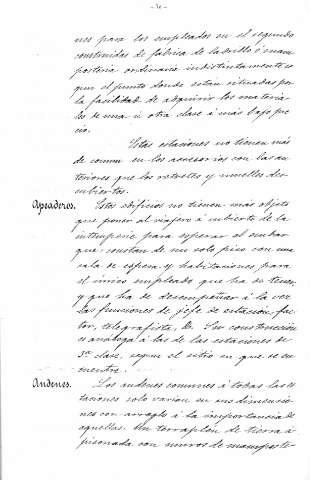 - 30 -
nes para los empleados en el segundo
construidas de fábrica de ladrillo ó mam
postería ordinaria indistintamente se
gun el punto donde están situadas por
la facilidad de adquirir los materia-
les de una ú otra clase á más bajo pre
cio.
Estas estaciones no tienen más
de comun en los accesorios con las an-
teriores que los retretes y muelles des-
cubiertos.
Apeaderos. Estos edificios no tienen más objeto
que poner al viajero á cubierto de la
intemperie para esperar el embar
que: constan de un solo piso con una
sala de espera, y habitaciones para
el único empleado que ha de tener,
y que ha de desempeñar á la vez
las funciones de jefe de estacion, fac
tor, telegrafista, &. Su construccion
es análoga á las de las estaciones de
3ª clase, segun el sitio en que se en-
cuentren.
Andenes. Los andenes comunes á todas las es
taciones solo varian en sus dimensio
nes con arreglo á la importancia de
aquellas. Un terraplén de tierra a-
pisonada con muros de mamposte-